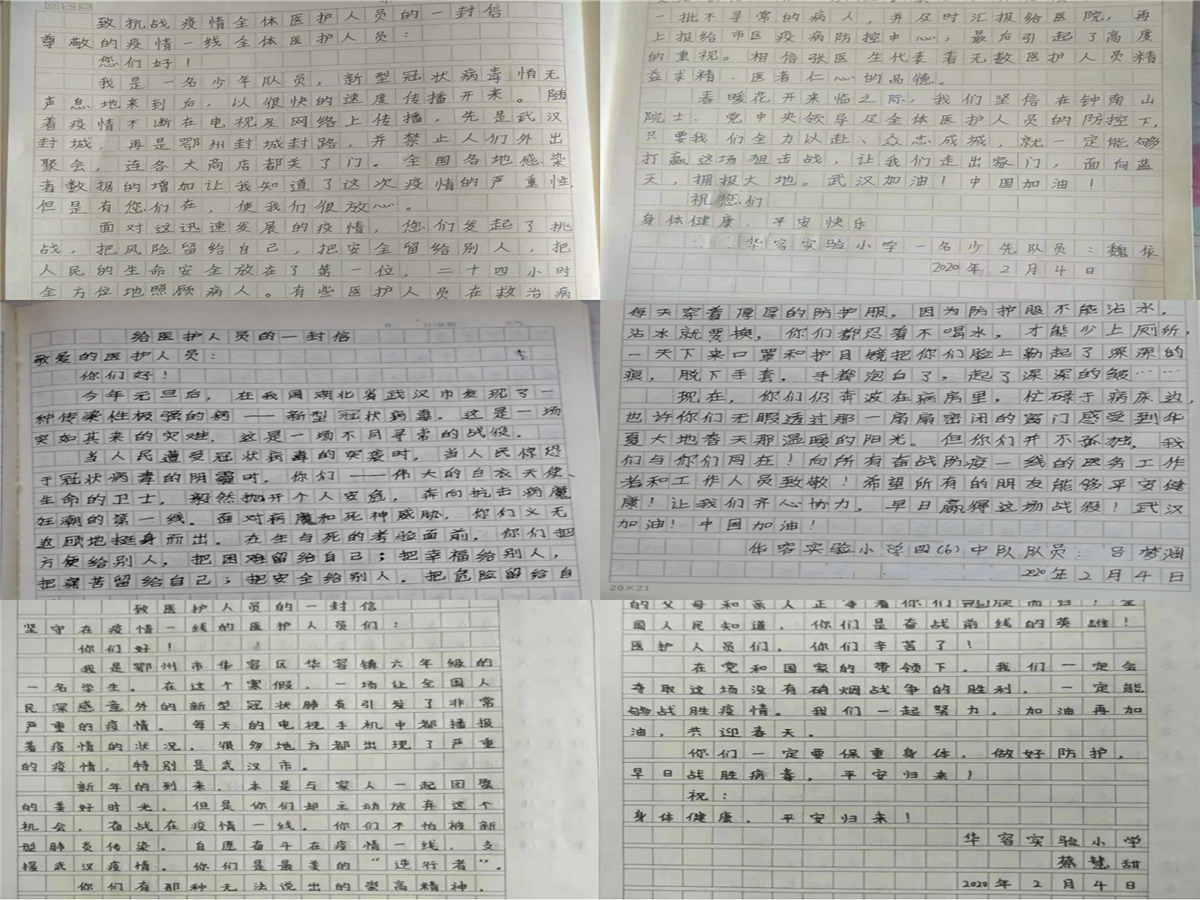 致抗战疫情全体医护人员的一封信
尊敬的疫情一线全体医护人员：
您们好！
我是一名少年队员，新型冠状病毒悄无
声息地来到后，以很快的速度传播开来。随
着疫情不断在电视及网络上传播，先是武汉
封城，再是鄂州封城封路，并禁止人们外出
聚会，连各大商店都关了门。全国各地感染
者数据的增加让我知道了这次疫情的严重性，
但是有您们在，使我们很放心。
面对这迅速发展的疫情，您们发起了挑
战，把风险留给自己，把安全留给别人，把
人民的生命安全放在了第一位，二十四小时
全方位地照顾病人。有些医护人员在救治病
一批不寻常的病人，并及时汇报给医院，再
上报给市区疫病防控中心，最后引起了高度
的重视。相信张医生代表着无数医护人员精
益求精、医者仁心的品德。
春暖花开来临之际，我们坚信在钟南山
院士、党中央领导及全体医护人员的防控下，
只要我们全力以赴、众志成城，就一定能够
打赢这场狙击战，让我们走出家门，面向蓝
天，拥报大地。武汉加油！中国加油！
祝您们
身体健康、平安快乐
华容实验小学一名少先队员：魏依
2020年2月4日
给医护人员的一封信
敬爱的医护人员：
你们好！
今年元旦后，在我国湖北省武汉市发现了一
种传染性极强的病——新型冠状病毒。这是一场
突如其来的灾难，这是一场不同寻常的战役。
当人民遭受冠状病毒的突袭时，当人民惊恐
于冠状病毒的阴霾时，你们——伟大的白衣天使、
生命的卫士，毅然抛开个人安危，奔向抗击病魔
狂潮的第一线。面对病魔和死神威胁，你们义无
返顾地挺身而出。在生与死的考验面前，你们把
方便给别人，把困难留给自己；把幸福给别人，
把痛苦留给自己；把安全给别人，把危险留给自
每天穿着厚厚的防护服，因为防护服不能沾水，
沾水就要换，你们都忍着不喝水，才能少上厕所，
一天下来口罩和护目镜把你们脸上勒起了深深的
痕，脱下手套，手都泡白了，起了深深的皱……
现在，你们仍奔波在病房里，忙碌于病床边，
也许你们无暇透过那一扇扇密闭的窗门感受到华
夏大地春天那温暖的阳光。但你们并不孤独，我
们与你们同在！向所有奋战防疫一线的医务工作
者和工作人员致敬！希望所有的朋友能够平安健
康！让我们齐心协力，早日赢得这场战役！武汉
加油！中国加油！
华容实验小学四(6)中队队员：吕梦涵
2020年2月4日
20×21
致医护人员的一封信
坚守在疫情一线的医护人员们：
你们好！
我是鄂州市华容区华容镇六年级的
一名学生。在这个寒假，一场让全国人
民深感意外的新型冠状肺炎引发了非常
严重的疫情。每天的电视手机中都播报
着疫情的状况。很多地方都出现了严重
的疫情，特别是武汉市。
新年的到来，本是与家人一起团聚
的美好时光，但是你们却主动放弃这个
机会，奋战在疫情一线。你们不怕被新
型肺炎传染。自愿奋斗在疫情一线，支
援武汉疫情。你们是最美的“逆行者”。
你们有那种无法说出的崇高精神，
的父母和亲人正等着你们凯旋而归！全
国人民知道，你们是奋战前线的英雄！
医护人员们，你们辛苦了！
在党和国家的带领下，我们一定会
夺取这场没有硝烟战争的胜利，一定能
够战胜疫情。我们一起努力，加油再加
油，共迎春天。
你们一定要保重身体，做好防护，
早日战胜病毒，平安归来！
祝：
身体健康，平安归来！
华容实验小学
蔡慧甜
2020年2月4日